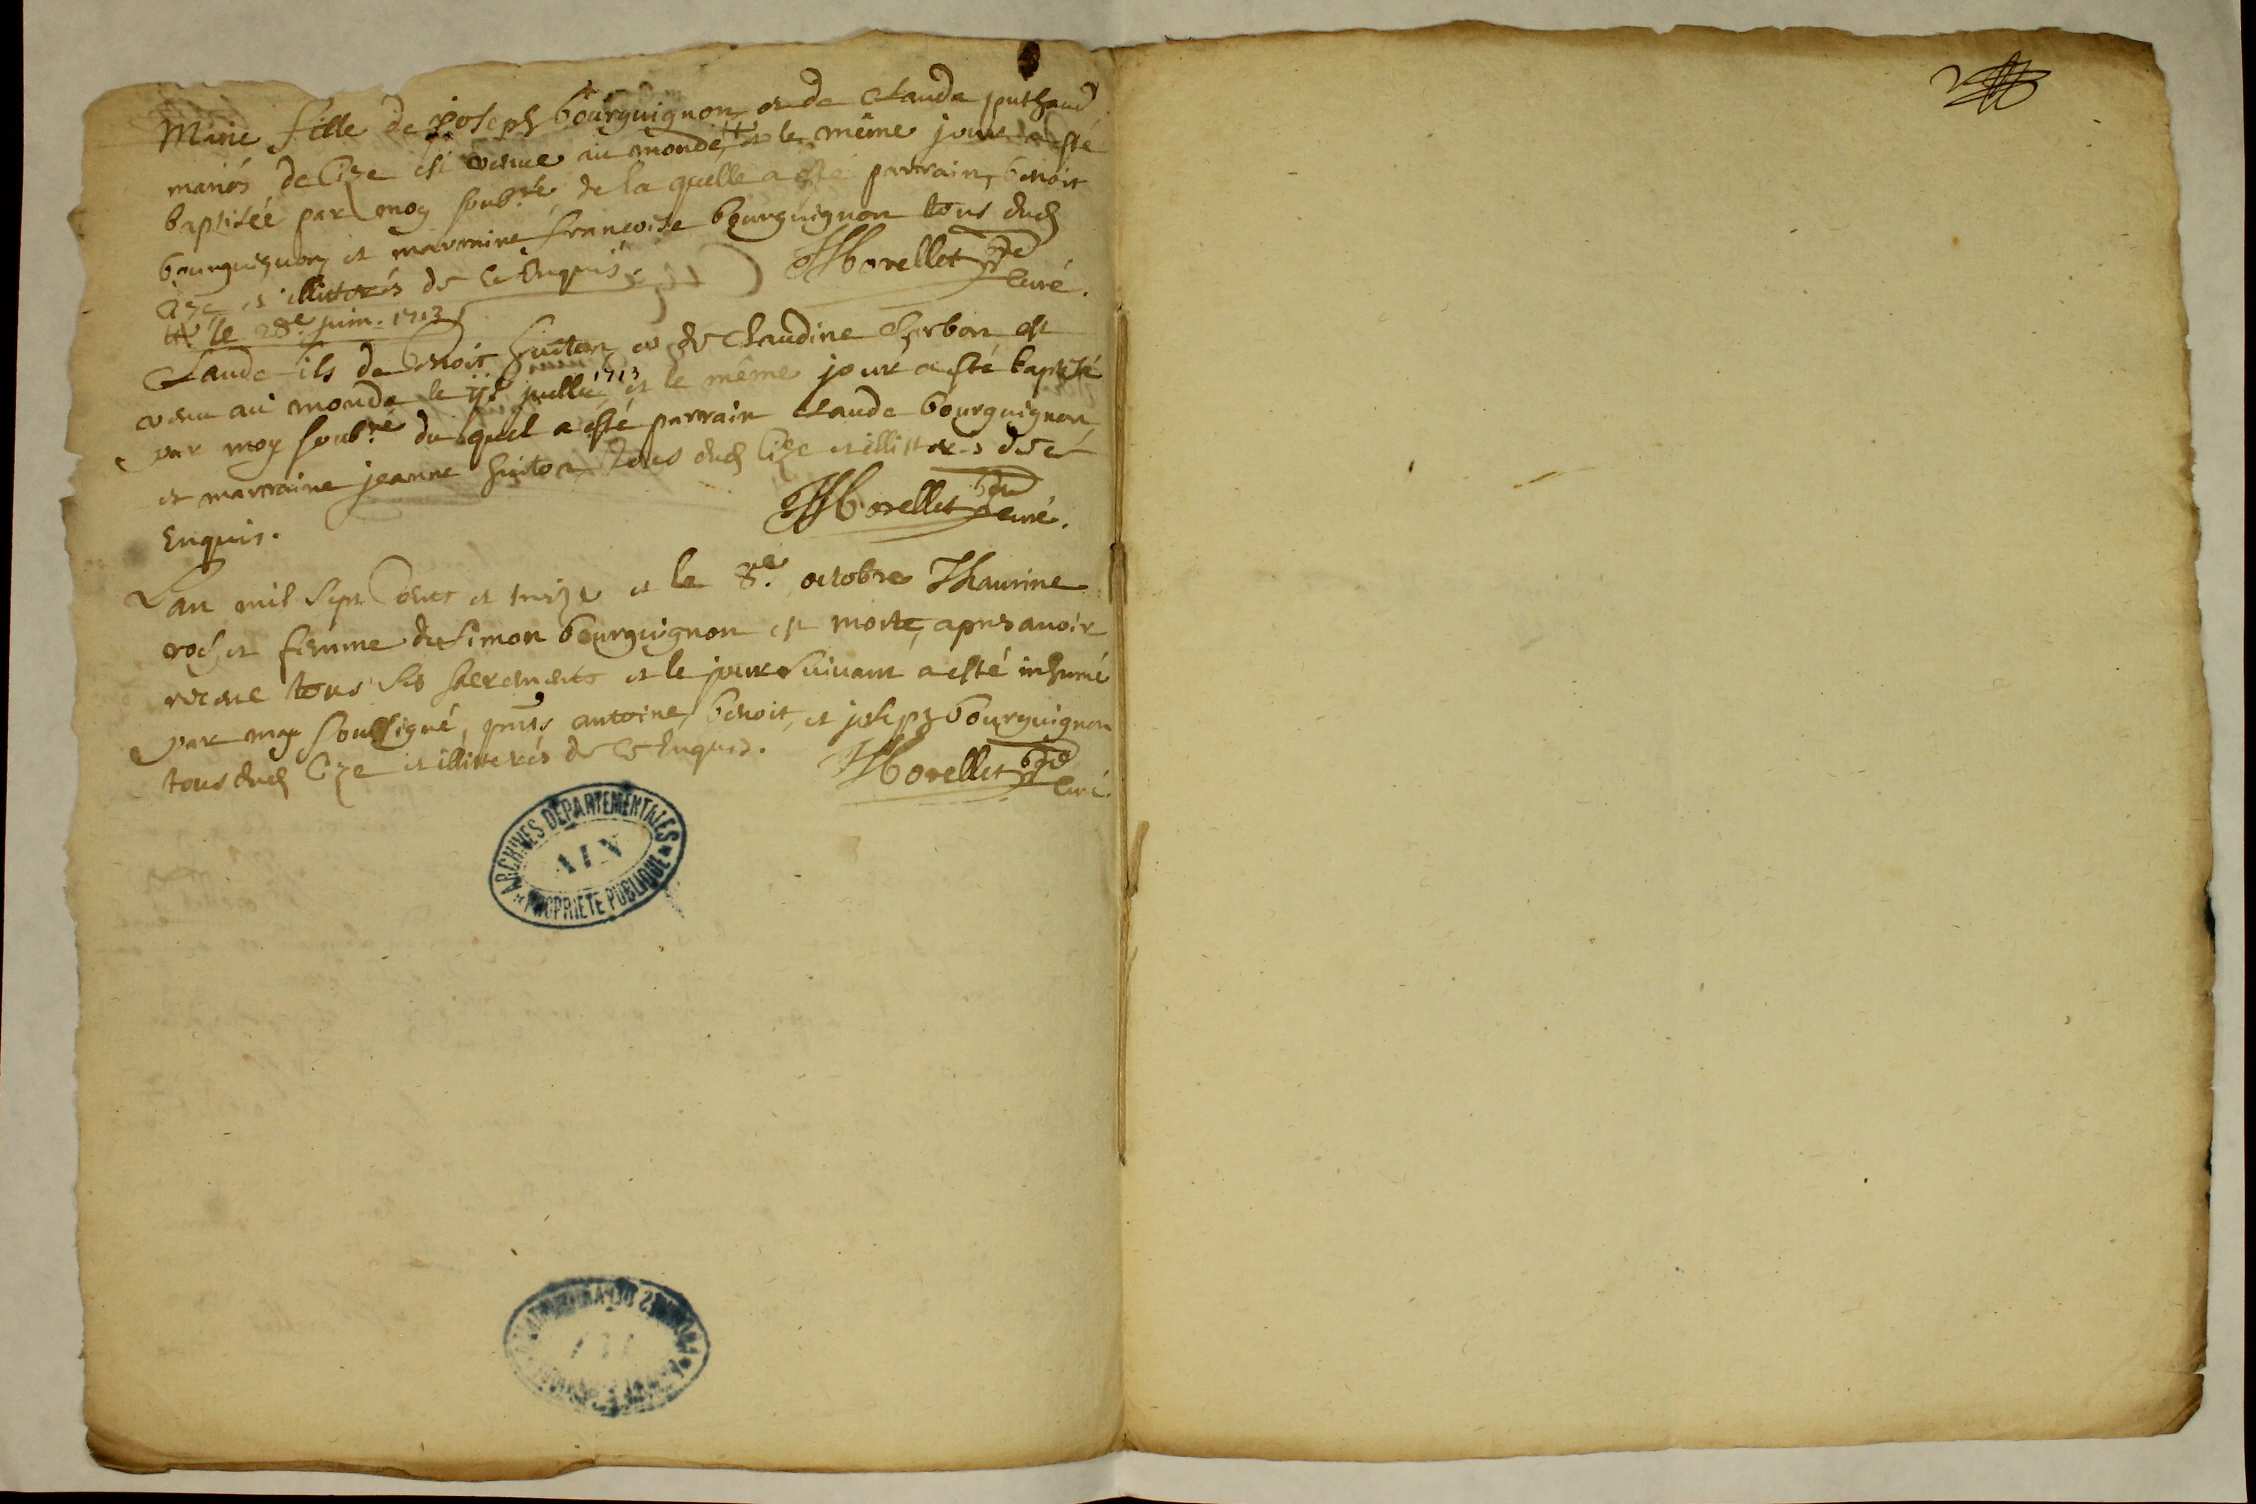 Marie fille de joseph bourguignon et de Claude puthaud
mariés de Cize est venue au monde, ++ et le même jour a esté
baptisée par moy soub.né, de la quelle a esté parrain, benoit
bourguignon et marraine françoise bourguignon tous dud
Cize et illitterés de ce Enquis.
Morellet curé.
++ le 28e juin. 1713
Claude fils de benoit huiton et de Claudine Cherbon est
venu au monde le juillet 1713 et le même jour a esté baptisé
par moy soub.né du quel a esté parrain Claude bourguignon
et marraine jeanne huiton tous dud Cize et illitterés de ce
Enquis.
Morellet curé.
L'an mil sept Cents et treize et le 8e. octobre Thaurine
rochet femme de Simon bourguignon est morte, apres avoir
receue tous ses sacrements et le jour suivant a esté inhumé
par moy soussigné, pnts antoine, benoit, et joseph bourguignon
tous dud Cize et illitterés de ce Enquis.
Morellet curé.
ARCHIVES DEPARTEMENTALES
AIN
PROPRIETE PUBLIQUE
2